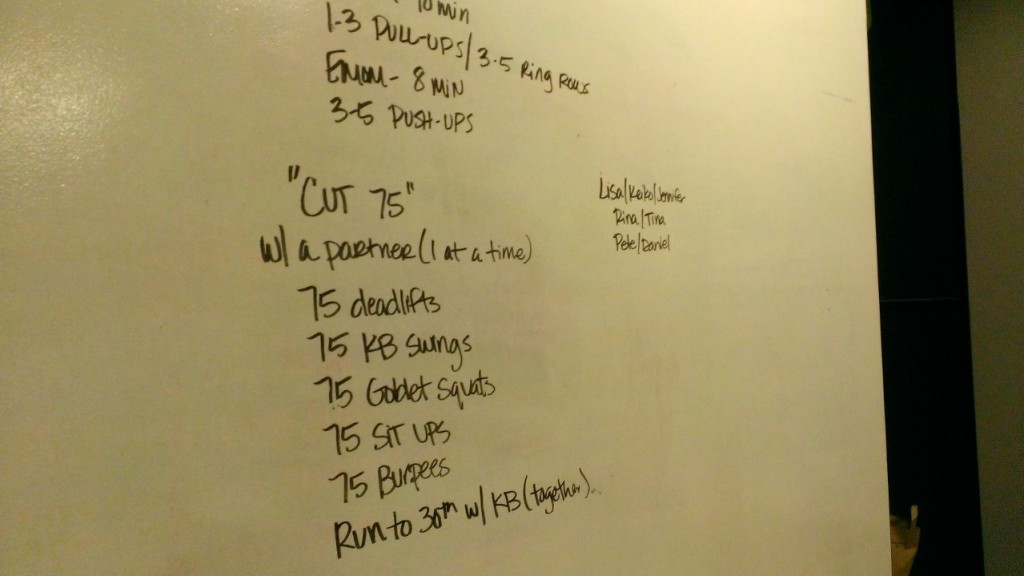 10 min
1-3 PULL-UPS/3-5 Ring Rows
EMOM - 8 MIN
3-5 PUSH-UPS
"CUT 75"
w/ a partner (1 at a time)
75 deadlifts
75 KB Swings
75 Goblet Squats
75 SIT UPS
75 Burpees
Run to 30th w/ KB (together)
Lisa/Keiko/Jennifer
Rina/Tina
Pete/Daniel